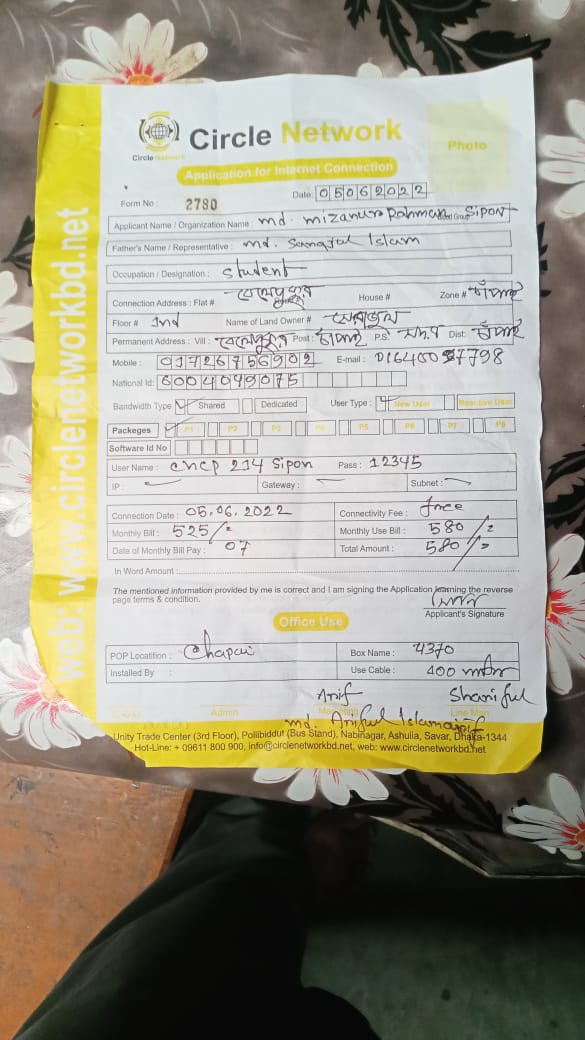 Circle Network
Circle Network
Photo
Application for Internet Connection
Date: 05062022
Form No : 2780
Applicant Name / Organization Name : md. mizanur Rahman Sipon
Father's Name / Representative : md. Islam
Occupation / Designation : Student
Connection Address : Flat # বেলেপুকুর House # Zone # চাঁপাই
Floor # 2nd Name of Land Owner #
Permanent Address : Vill : বেলেপুকুর Post : চাঁপাই P.S: সদর Dist: চাঁপাই
Mobile : 01726756902 E-mail :
National Id: 6004049075
Bandwidth Type Shared Dedicated User Type : New User Reactive User
Packeges P1 P2 P3 P4 P5 P6 P7 P8
Software Id No
User Name : chcp 214 Sipon Pass : 12345
IP : Gateway : Subnet :
Connection Date : 05.06.2022 Connectivity Fee : free
Monthly Bill : 525/= Monthly Use Bill : 580/=
Date of Monthly Bill Pay : 07 Total Amount : 580/=
In Word Amount :
The mentioned information provided by me is correct and I am signing the Application learning the reverse
page terms & condition.
Applicant's Signature
Office Use
POP Locatition : Chapai Box Name : 4370
Installed By : Use Cable : 400
Arif Shariful
Admin Marketing Line Man
md. Ariful Islam
Unity Trade Center (3rd Floor), Pollibiddut (Bus Stand), Nabinagar, Ashulia, Savar, Dhaka-1344
Hot-Line: + 09611 800 900, info@circlenetworkbd.net, web: www.circlenetworkbd.net
web: www.circlenetworkbd.net